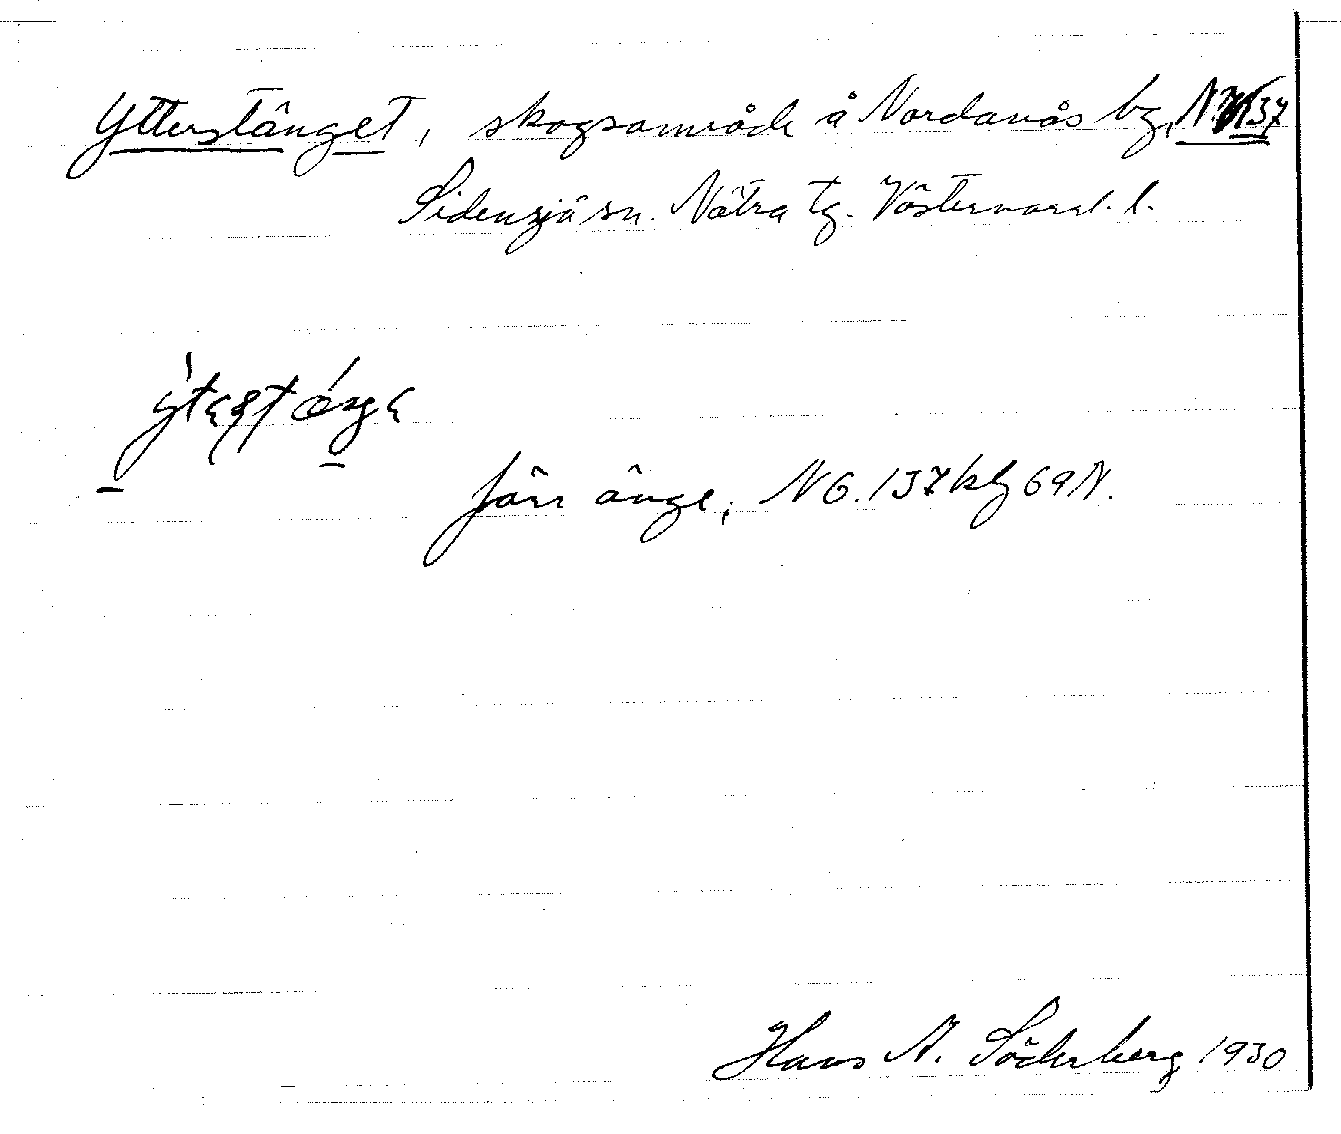 Ytterstänget, skogsområde å Nordanås by,
Sidensjö sn. Nätra tg. Västernorrl. l.
förr änge, NG. 137 kly 69 N.
Hans A. Söderberg 1930